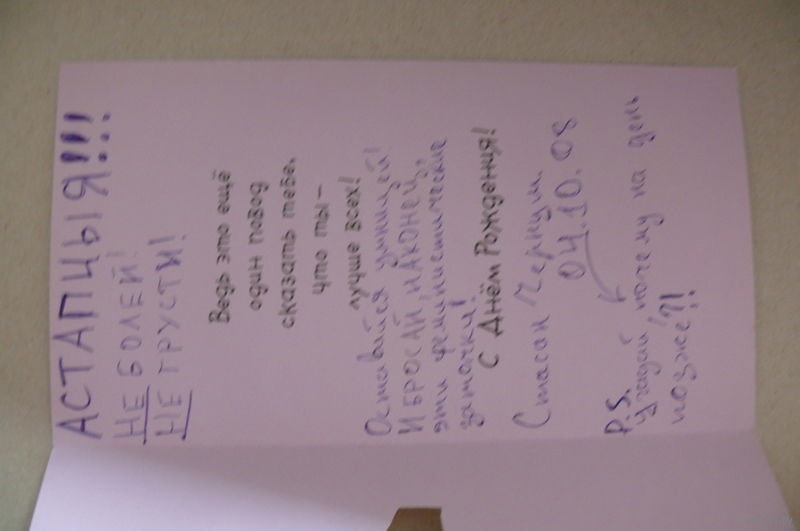 АСТАПЦЫЯ!!!
НЕ БОЛЕЙ!
НЕ ГРУСТИ!
Ведь это ещё
один повод
сказать тебе,
что ты –
лучше всех!
Оставайся умницей!
И БРОСАЙ НАКОНЕЦ,
эти феминистические
заточки!
С Днём Рождения!
Стасан
04.10.08
P.S.
угадай почему на день
позже?!!